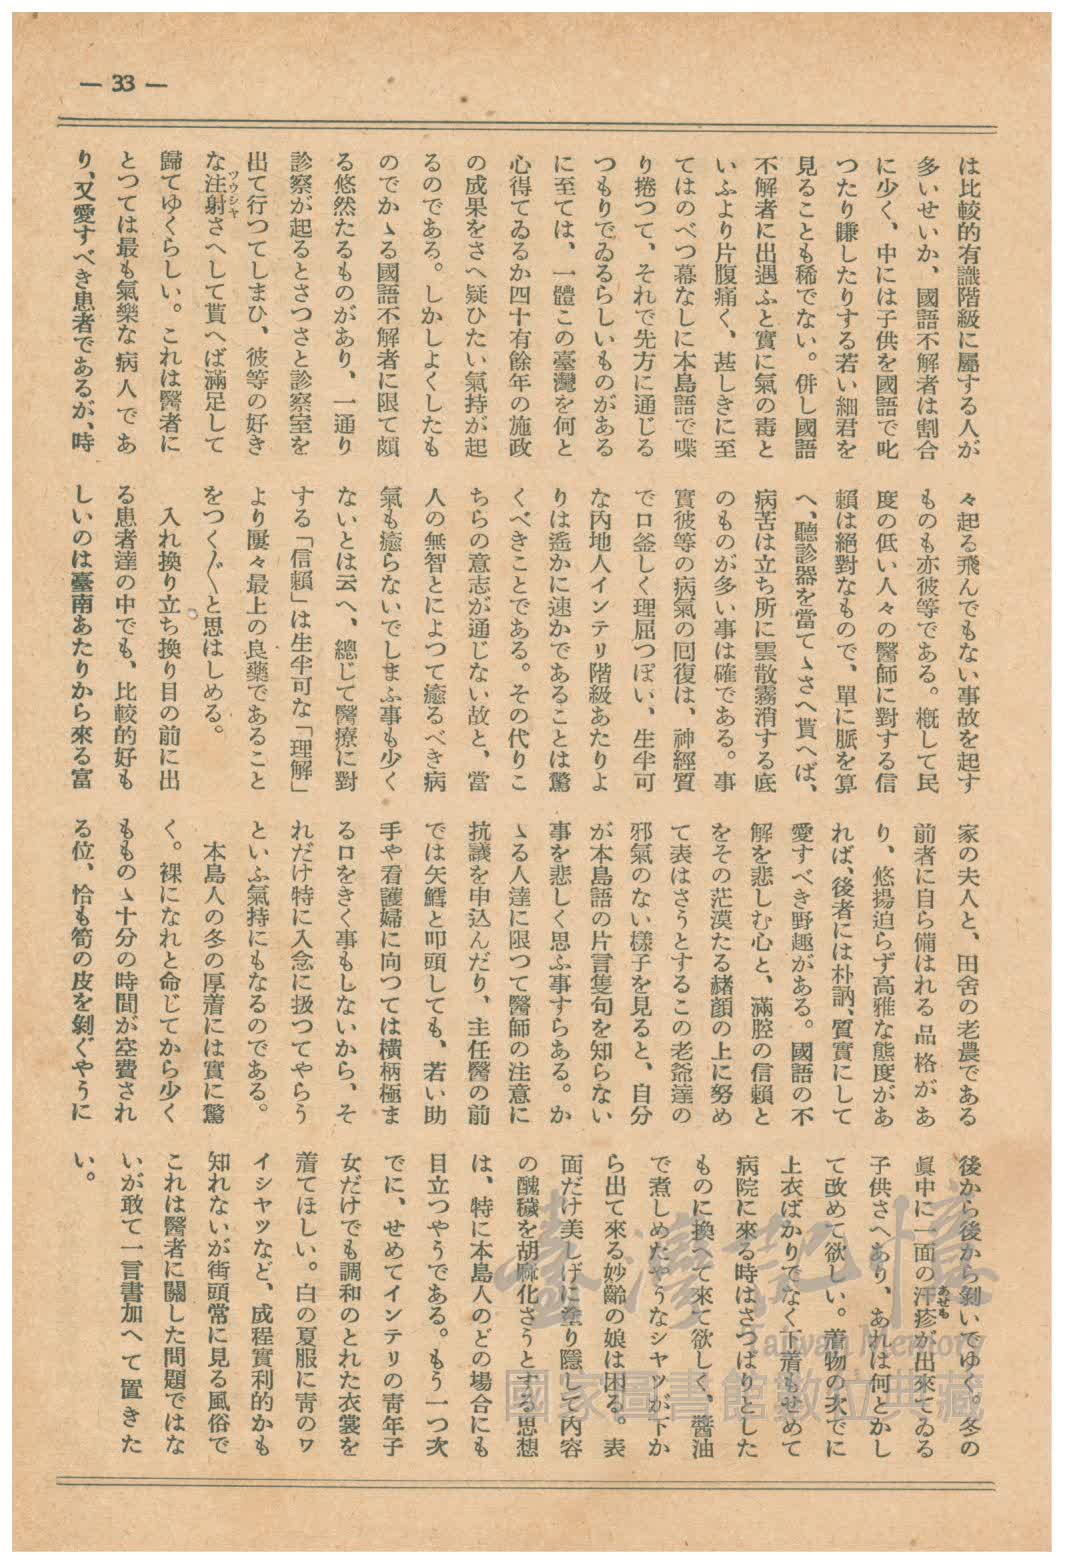 — 33 —
は比較的有識階級に屬する人が
多いせいか、國語不解者は割合
に少く、中には子供を國語で叱
つたり賺したりする若い細君を
見ることも稀でない。併し國語
不解者に出遇ふと實に氣の毒と
いふより片腹痛く、甚しきに至
てはのべつ幕なしに本島語で喋
り捲つて、それで先方に通じる
つもりでゐるらしいものがある
に至ては、一體この臺灣を何と
心得てゐるか四十有餘年の施政
の成果をさへ疑ひたい氣持が起
るのである。しかしよくしたも
のでかゝる國語不解者に限て頗
る悠然たるものがあり、一通り
診察が起るとさつさと診察室を
出て行つてしまひ、彼等の好き
な注射さへして貰へば滿足して
ツウシヤ
歸てゆくらしい。これは醫者に
とつては最も氣樂な病人であ
り、又愛すべき患者であるが、時
々起る飛んでもない事故を起す
ものも亦彼等である。槪して民
度の低い人々の醫師に對する信
賴は絕對なもので、單に脈を算
へ、聽診器を當てゝさへ貰へば、
病苦は立ち所に雲散霧消する底
のものが多い事は確である。事
實彼等の病氣の囘復は、神經質
で口釜しく理屈つぽい、生半可
な內地人インテリ階級あたりよ
りは遙かに速かであることは驚
くべきことである。その代りこ
ちらの意志が通じない故と、當
人の無智とによつて癒るべき病
氣も癒らないでしまふ事も少く
ないとは云へ、總じて醫療に對
する「信賴」は生半可な「理解」
より屢々最上の良藥であること
をつく〲と思はしめる。
入れ換り立ち換り目の前に出
る患者達の中でも、比較的好も
しいのは臺南あたりから來る富
家の夫人と、田舍の老農である
前者に自ら備はれる品格があ
り、悠揚迫らず高雅な態度があ
れば、後者には朴訥、質實にして
愛すべき野趣がある。國語の不
解を悲しむ心と、滿腔の信賴と
をその茫漠たる赭顏の上に努め
て表はさうとするこの老爺達の
邪氣のない樣子を見ると、自分
が本島語の片言隻句を知らない
事を悲しく思ふ事すらある。か
ゝる人達に限つて醫師の注意に
抗議を申込んだり、主任醫の前
では矢鱈と叩頭しても、若い助
手や看護婦に向つては橫柄極ま
る口をきく事もしないから、そ
れだけ特に入念に扱つてやらう
といふ氣持にもなるのである。
本島人の冬の厚着には實に驚
く。裸になれと命じてから少く
もものゝ十分の時間が空費され
る位、恰も筍の皮を剝ぐやうに
後から後から剝いでゆく。冬の
眞中に一面の汗疹が出來てゐる
あせも
子供さへあり、あれは何とかし
て改めて欲しい。着物の次でに
上衣ばかりでなく下着もせめて
病院に來る時はさつぱりとした
ものに換へて來て欲しく、醬油
で煮しめたやうなシャツが下か
ら出て來る妙齡の娘は困る。表
面だけ美しげに塗り隱して內容
の醜穢を胡麻化さうとする思想
は、特に本島人のどの場合にも
目立つやうである。もう一つ次
でに、せめてインテリの靑年子
女だけでも調和のとれた衣裳を
着てほしい。白の夏服に靑のワ
イシヤツなど、成程實利的かも
知れないが街頭常に見る風俗で
これは醫者に關した問題ではな
いが敢て一言書加へて置きた
い。
臺灣記憶
Taiwan Memory
國家圖書館數位典藏